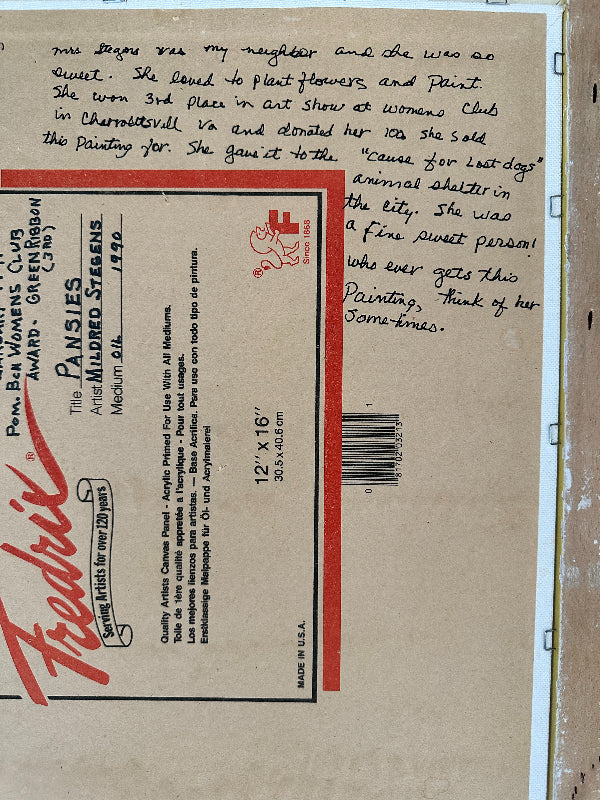 mrs Stegens was my neighbor and she was so
sweet. She loved to plant flowers and Paint.
She won 3rd place in art show at womens Club
in Charrottsvill Va and donated her 100 she sold
this Painting for. She gave it to the "cause for Lost dogs"
animal shelter in
the city. She was
a fine sweet person!
who ever gets this
Painting, think of her
Sometimes.
Pom. Bch WOMENS CLUB
AWARD - GREEN RIBBON
(3RD)
Title PANSIES
Artist MILDRED STEGENS
Medium OIL 1990
F
®
Since 1868
Fredrix®
Serving Artists for over 120 years
Quality Artists Canvas Panel - Acrylic Primed For Use With All Mediums.
Toile de 1ère qualité appretée a l'acrylique - Pour tout usages.
Los mejores lienzos para artistas. — Base Acrifica. Para uso con todo tipo de pintura.
Erstklassige Malpappe für Öl- und Acrylmalerei
12" x 16"
30.5 x 40.6 cm
MADE IN U.S.A.
0 81702 03213 1